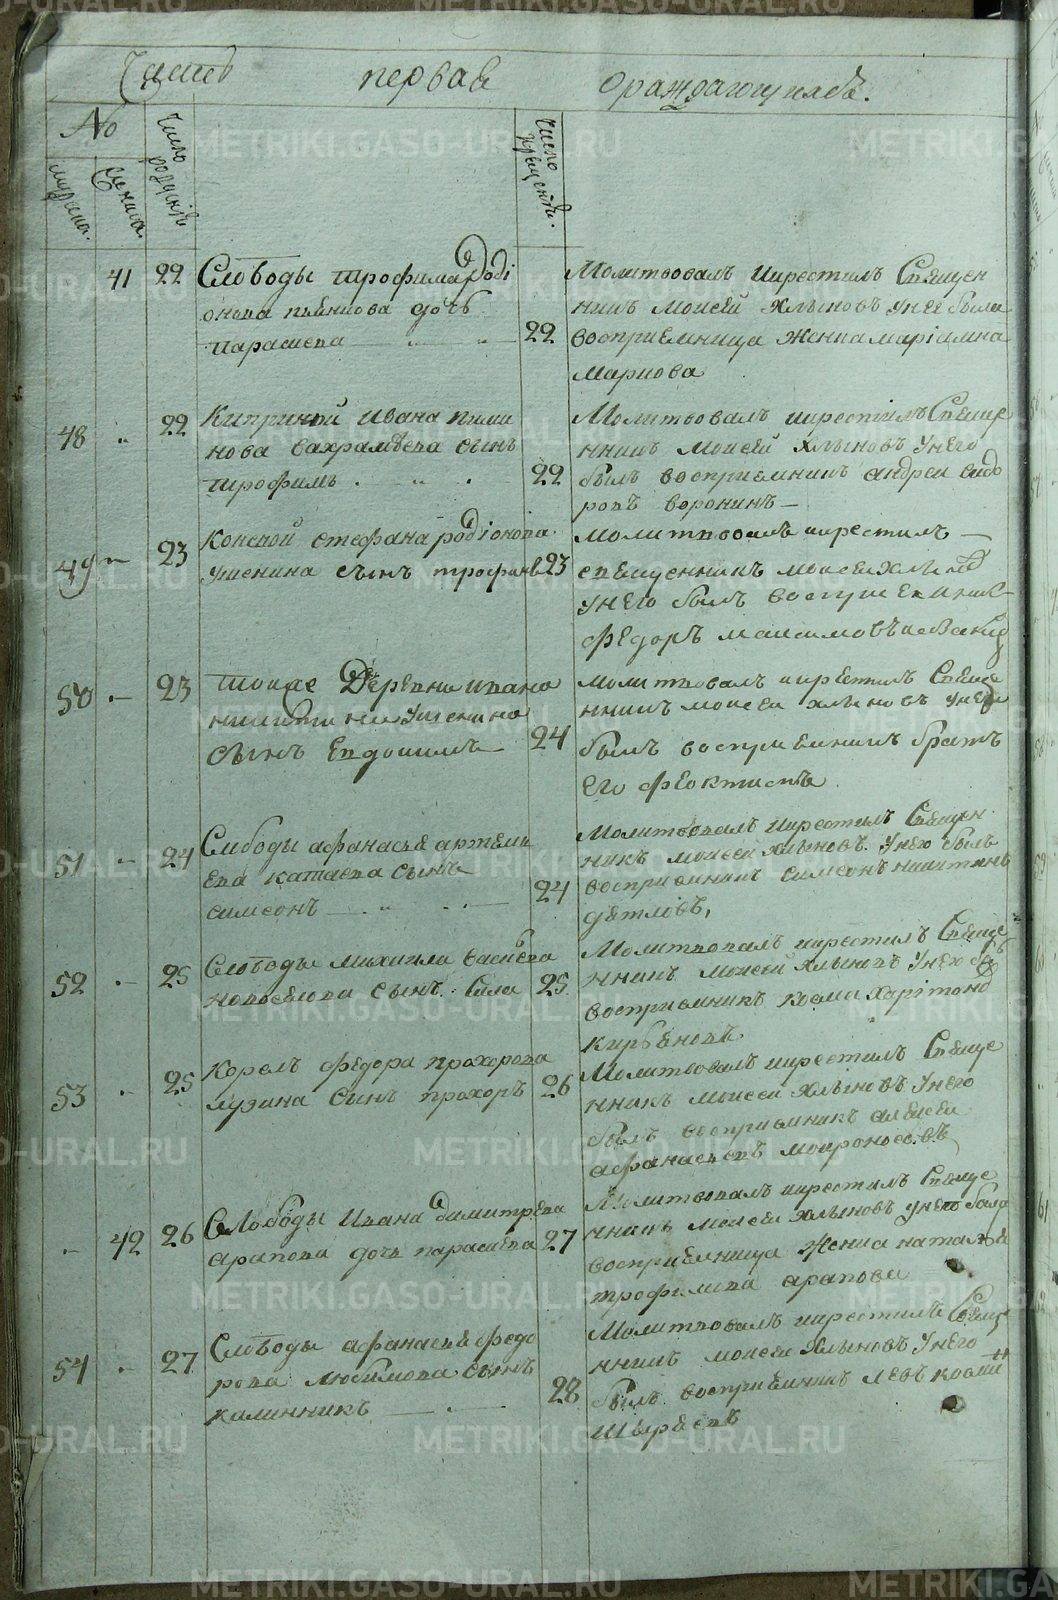 Часть первая о раждающихся.
No
мужеска.
женска.
число рождения
число крещения.
41 22 Слободы трофима Роді
онова пьянкова дочь
парасиева
22
Молитвовалъ икрестилъ Священ
никъ Моисей Хлыновъ Унеи была
восприемница Женка маріамна
маркова
48 22 Ивана пими
нова вахрамѣева сынъ
трофимъ
22
Молитвовалъ икрестилъ Свяще
нникъ Моисей Хлыновъ Унего
былъ восприемникъ андреи сидо
ровъ воронинъ
49 23 стефана родіонова
сынъ трофимъ 23
молитвовалъ икрестилъ
священникъ моисеи хлыновъ
унего былъ восприемникъ
федоръ максимовъ
50 23 тоиже Деревни ивана
никитина
сынъ Евдокимъ
24
молитвовалъ икрестилъ Свяще
нникъ моисеи хлыновъ унего
былъ восприемникъ братъ
его феоктистъ
51 24 Слободы афанасья артемь
ева катаева сынъ
симеонъ
24
Молитвовалъ икрестилъ Священ
никъ моисеи Хлыновъ. Унего былъ
восприемникъ симеонъ никитинъ
дѣтловъ,
52 25 Слободы михаила василева
новоселова сынъ Сила 25
Молитвовалъ икрестилъ Свяще
нникъ моисей Хлыновъ Унего былъ
восприемникъ козма Харітоновъ
кирьяновъ
53 25 федора прохорова
лузина Сынъ прохоръ 26
Молитвовалъ икрестилъ Свяще
нникъ моисеи Хлыновъ Унего
былъ восприемникъ алексеи
афанасьевъ мокроносовъ
42 26 Слободы Ивана димитрева
арапова дочь парасиева 27
Молитвовалъ икрестилъ Свяще
нникъ моисеи Хлыновъ унего была
восприемница Женка наталья
трофимова арапова
54 27 Слободы афанасья федо
рова любимова сынъ
калинникъ
28
Молитвовалъ икрестилъ Свяще
нникъ моисеи Хлыновъ Унего
былъ восприемникъ левъ козминъ